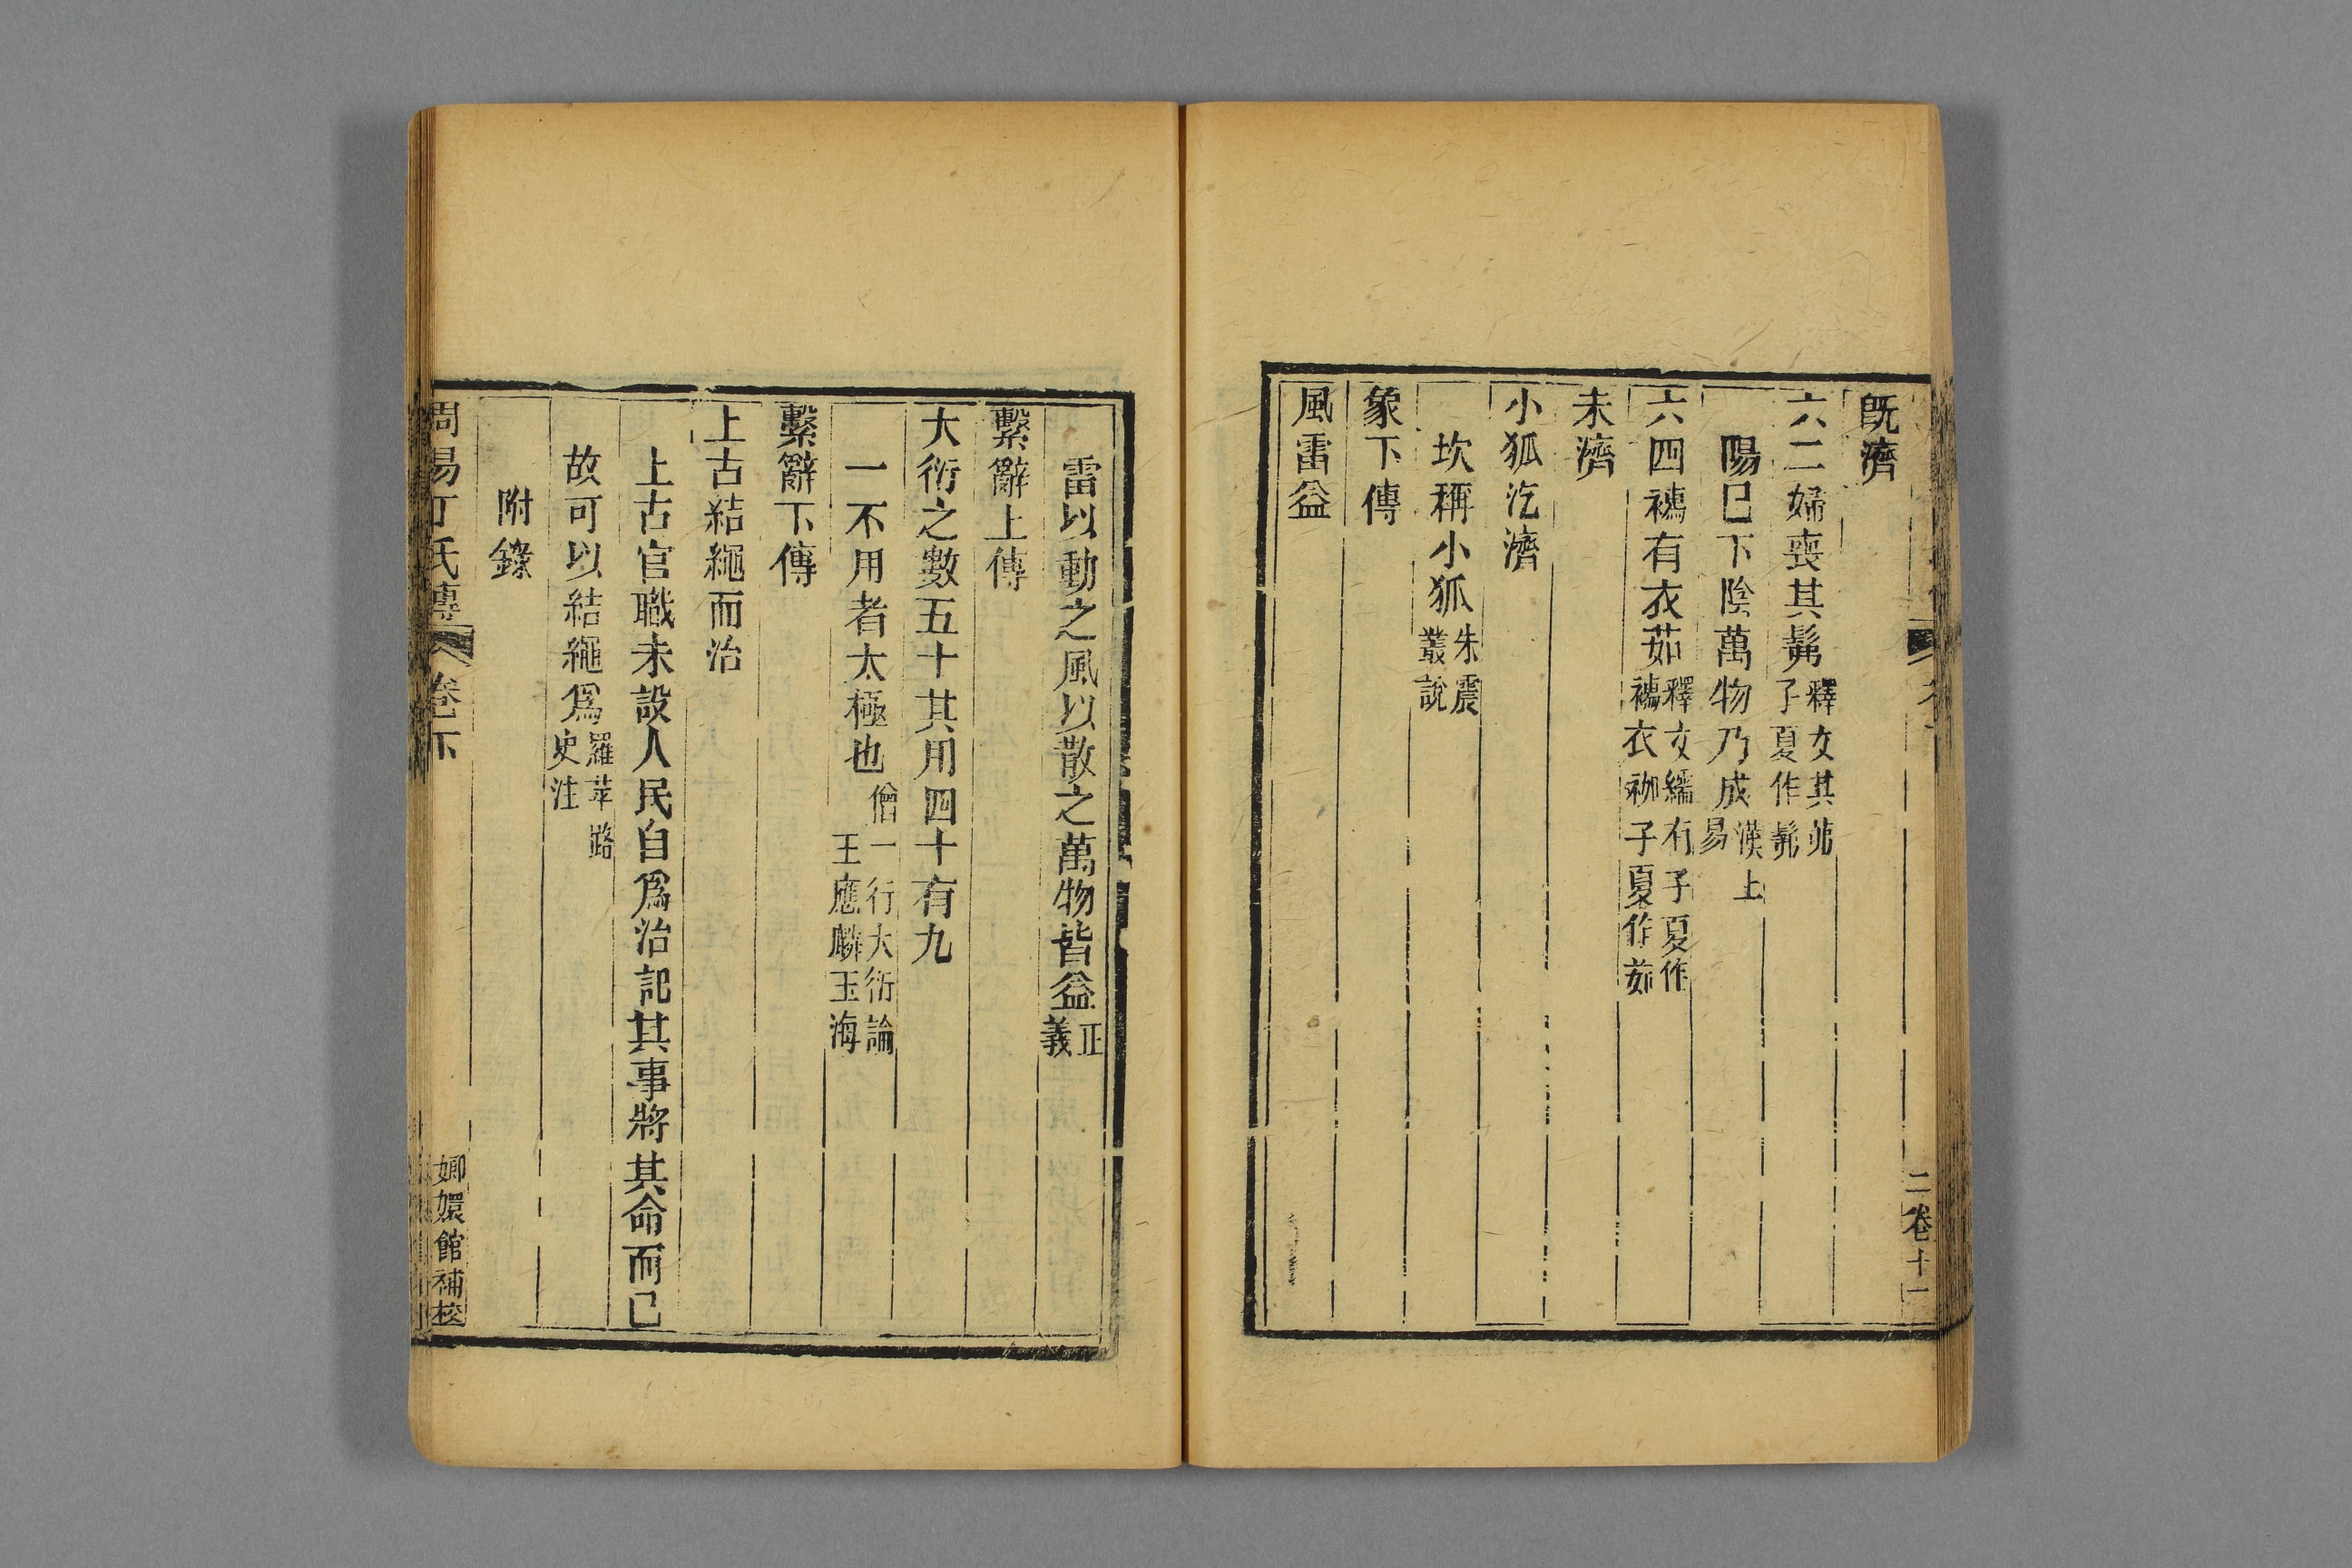 既濟
六二婦喪其髴釋文其茀子夏作髴
陽已下陰萬物乃成漢上易
六四襦有衣茹釋文繻有子夏作襦衣袽子夏作茹
未濟
小狐汔濟
坎稱小狐朱震叢說
象下傳
風雷益
二卷十一
雷以動之風以散之萬物皆益正義
繫辭上傳
大衍之數五十其用四十有九
一不用者太極也僧一行大衍論王應麟玉海
繫辭下傳
上古結繩而治
上古官職未設人民自爲治記其事將其命而已
故可以結繩爲羅苹路史注
附錄
周易丁氏傳 卷下
嫏嬛館補校